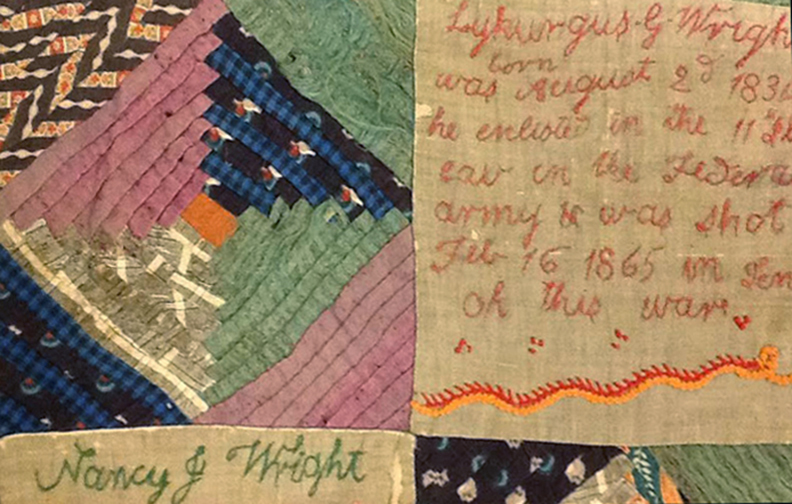 Lykurgus G Wrigh
born
was August 2d 183
he enlisted in the 11
cav in the Federa
army & was shot
Feb 16 1865 in Ten
oh this war
Nancy J Wright